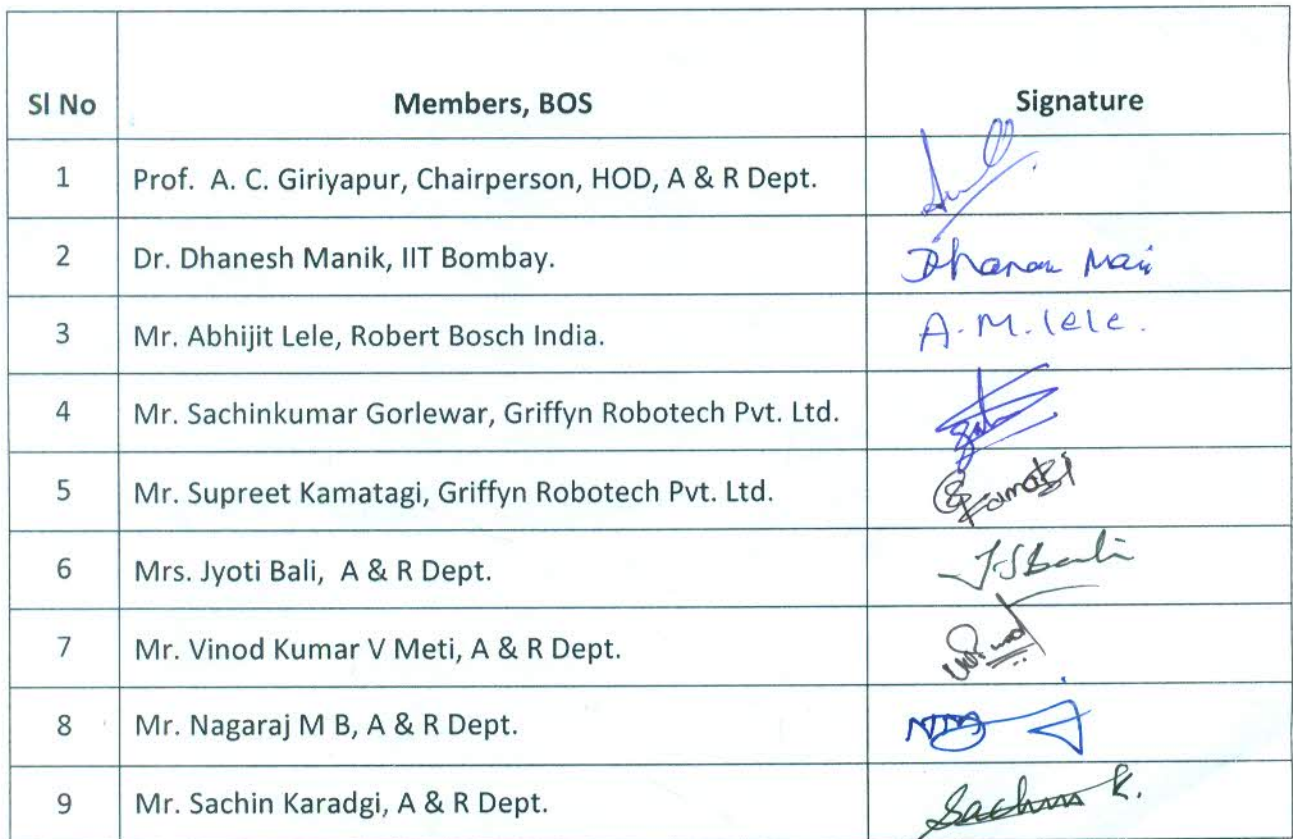 Sl No Members, BOS Signature
1 Prof. A. C. Giriyapur, Chairperson, HOD, A & R Dept.
2 Dr. Dhanesh Manik, IIT Bombay. Dhanesh Mani
3 Mr. Abhijit Lele, Robert Bosch India. A.M. lele.
4 Mr. Sachinkumar Gorlewar, Griffyn Robotech Pvt. Ltd.
5 Mr. Supreet Kamatagi, Griffyn Robotech Pvt. Ltd.
6 Mrs. Jyoti Bali, A & R Dept. J.S Bali
7 Mr. Vinod Kumar V Meti, A & R Dept.
8 Mr. Nagaraj M B, A & R Dept.
9 Mr. Sachin Karadgi, A & R Dept. Sachin K.